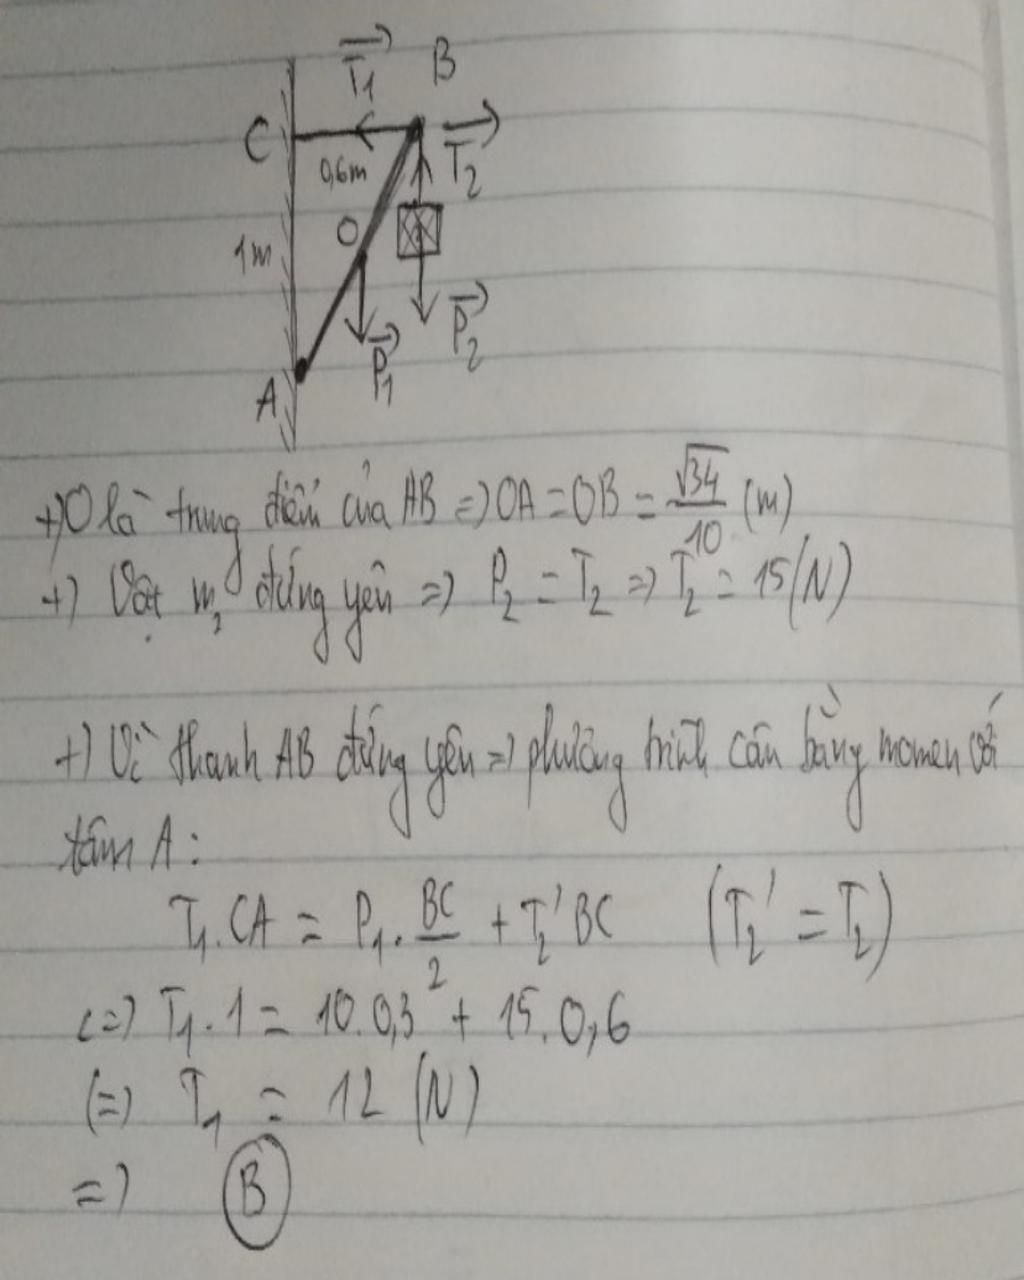 T₁ B
C T₂
0,6m
O
1m
P₂
P₁
A
+) O là trung điểm của AB => OA = OB = √34/10 (m)
+) Vật m₂ đứng yên => P₂ = T₂ => T₂ = 15 (N)
+) Vì thanh AB đứng yên => phương trình cân bằng momen với
tâm A:
T₁.CA = P₁.BC/2 + T₂' BC (T₂' = T₂)
<=> T₁.1 = 10.0,3 + 15.0,6
(=) T₁ = 12 (N)
=> B